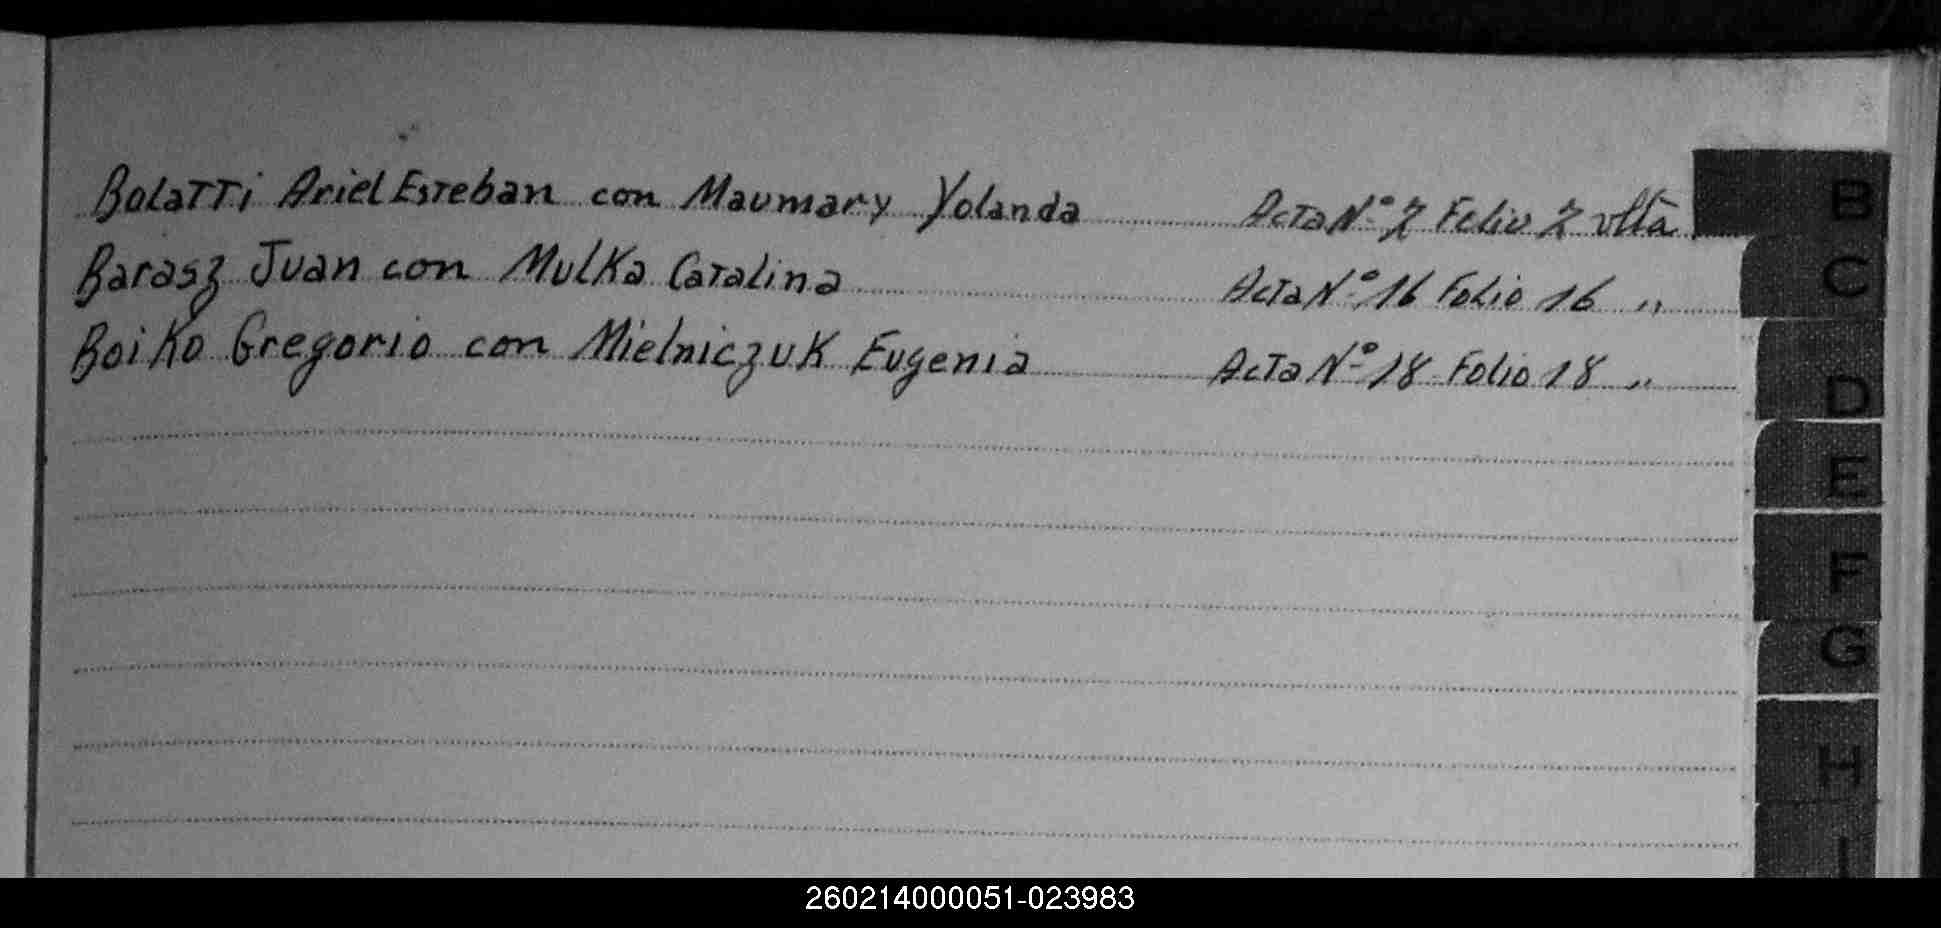 Bolatti Ariel Esteban con Maumary Yolanda Acta Nº 2 Folio 2 vlta
Barasz Juan con Mulka Catalina Acta Nº 16 Folio 16 "
Boiko Gregorio con Mielniczuk Eugenia Acta Nº 18 Folio 18 "
B
C
D
E
F
G
H
I
260214000051-023983